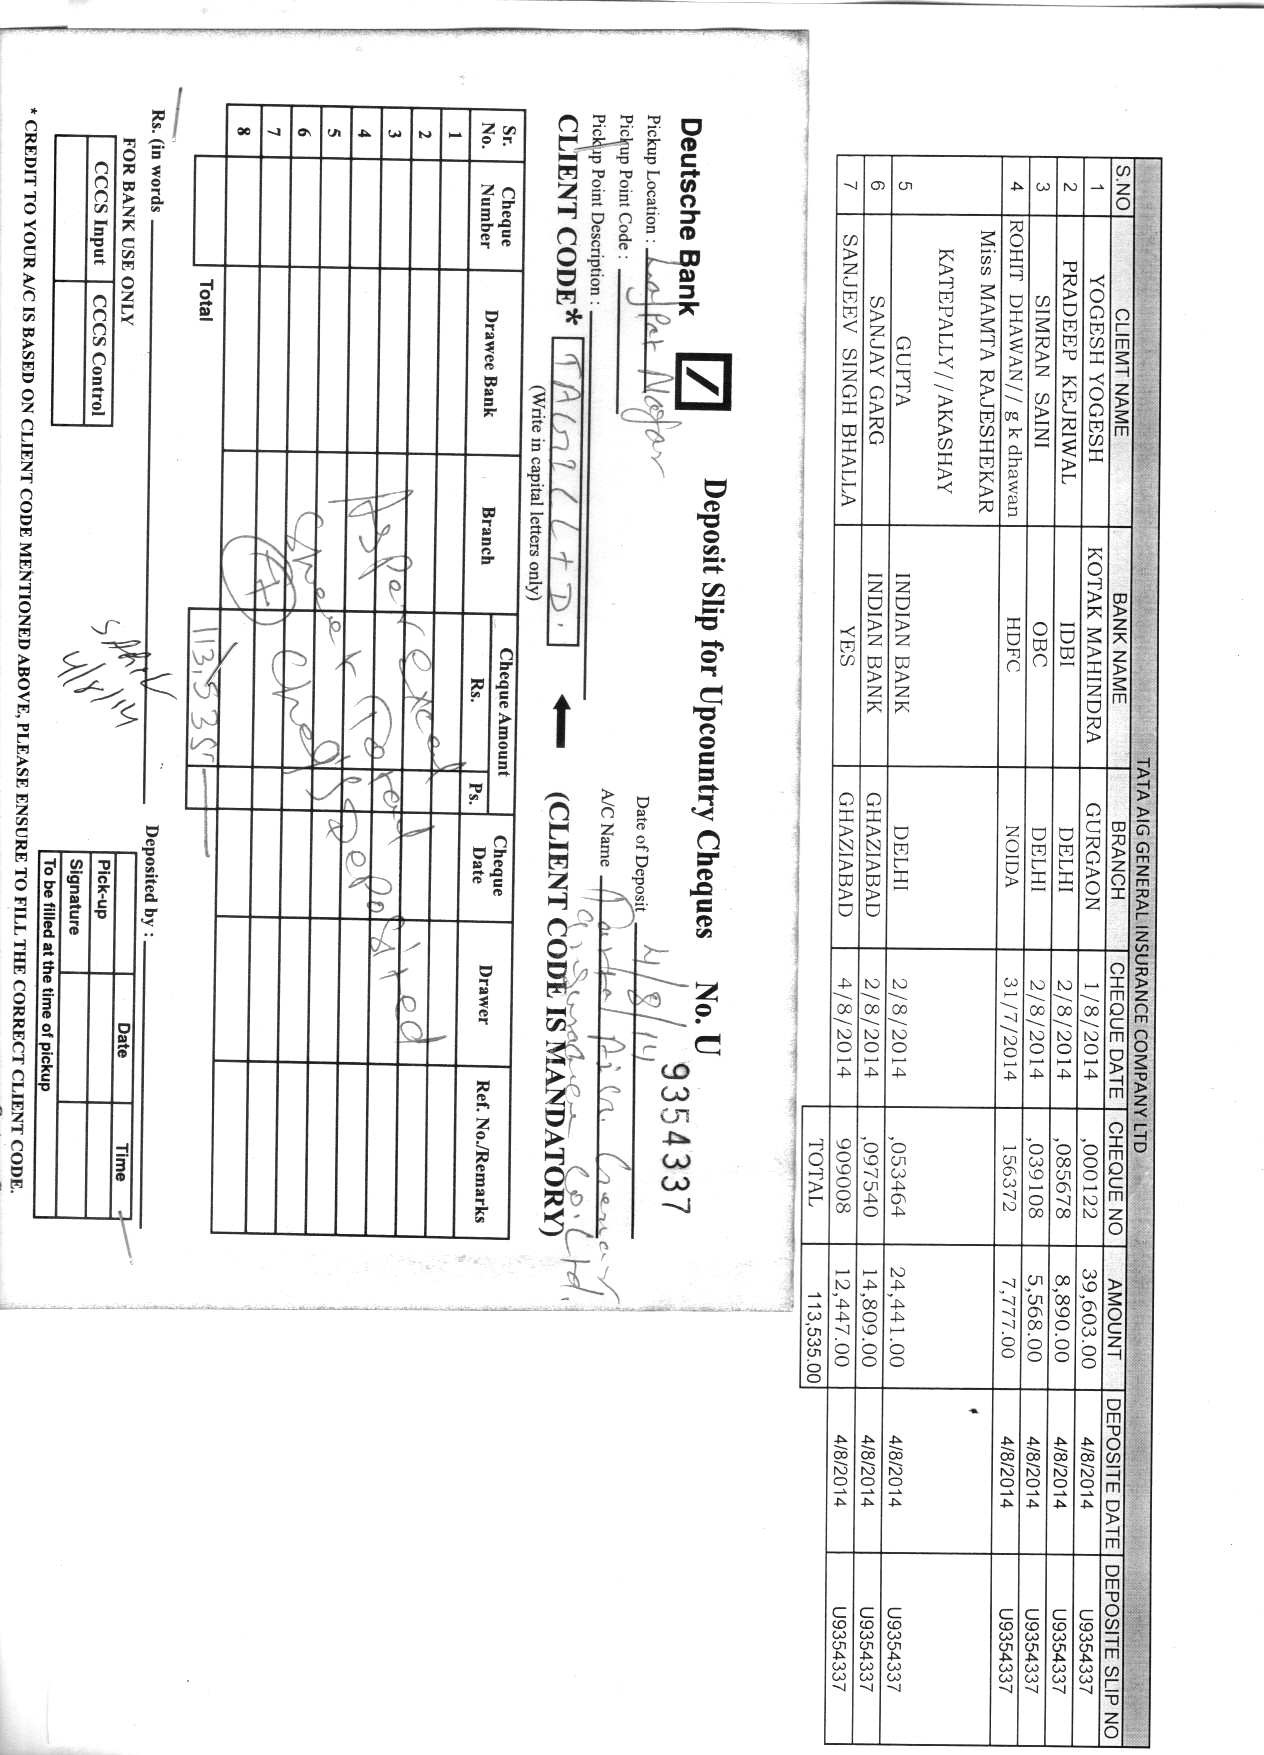 TATA AIG GENERAL INSURANCE COMPANY LTD
S.NO CLIEMT NAME BANK NAME BRANCH CHEQUE DATE CHEQUE NO AMOUNT DEPOSITE DATE DEPOSITE SLIP NO
1 YOGESH YOGESH KOTAK MAHINDRA GURGAON 1/8/2014 ,000122 39,603.00 4/8/2014 U9354337
2 PRADEEP KEJRIWAL IDBI DELHI 2/8/2014 ,085678 8,890.00 4/8/2014 U9354337
3 SIMRAN SAINI OBC DELHI 2/8/2014 ,039108 5,568.00 4/8/2014 U9354337
4 ROHIT DHAWAN// g k dhawan HDFC NOIDA 31/7/2014 156372 7,777.00 4/8/2014 U9354337
Miss MAMTA RAJESHEKAR
KATEPALLY//AKASHAY
5 GUPTA INDIAN BANK DELHI 2/8/2014 ,053464 24,441.00 4/8/2014 U9354337
6 SANJAY GARG INDIAN BANK GHAZIABAD 2/8/2014 ,097540 14,809.00 4/8/2014 U9354337
7 SANJEEV SINGH BHALLA YES GHAZIABAD 4/8/2014 909008 12,447.00 4/8/2014 U9354337
TOTAL 113,535.00
Deutsche Bank Deposit Slip for Upcountry Cheques No. U 9354337
Pickup Location : Lajpat Nagar Date of Deposit 4/8/14
Pickup Point Code : A/C Name
Pickup Point Description :
CLIENT CODE* TAGICLTD. (CLIENT CODE IS MANDATORY)
(Write in capital letters only)
Sr. No. Cheque Number Drawee Bank Branch Cheque Amount Rs. Ps. Cheque Date Drawer Ref. No./Remarks
1
2
3
4
5
6
7
8
As per excel
Sheet Total
7 Chq's Deposited
Total 113,535
Rs. (in words) Deposited by :
FOR BANK USE ONLY
CCCS Input CCCS Control
4/8/14
Date Time
Pick-up
Signature
To be filled at the time of pickup
* CREDIT TO YOUR A/C IS BASED ON CLIENT CODE MENTIONED ABOVE, PLEASE ENSURE TO FILL THE CORRECT CLIENT CODE.